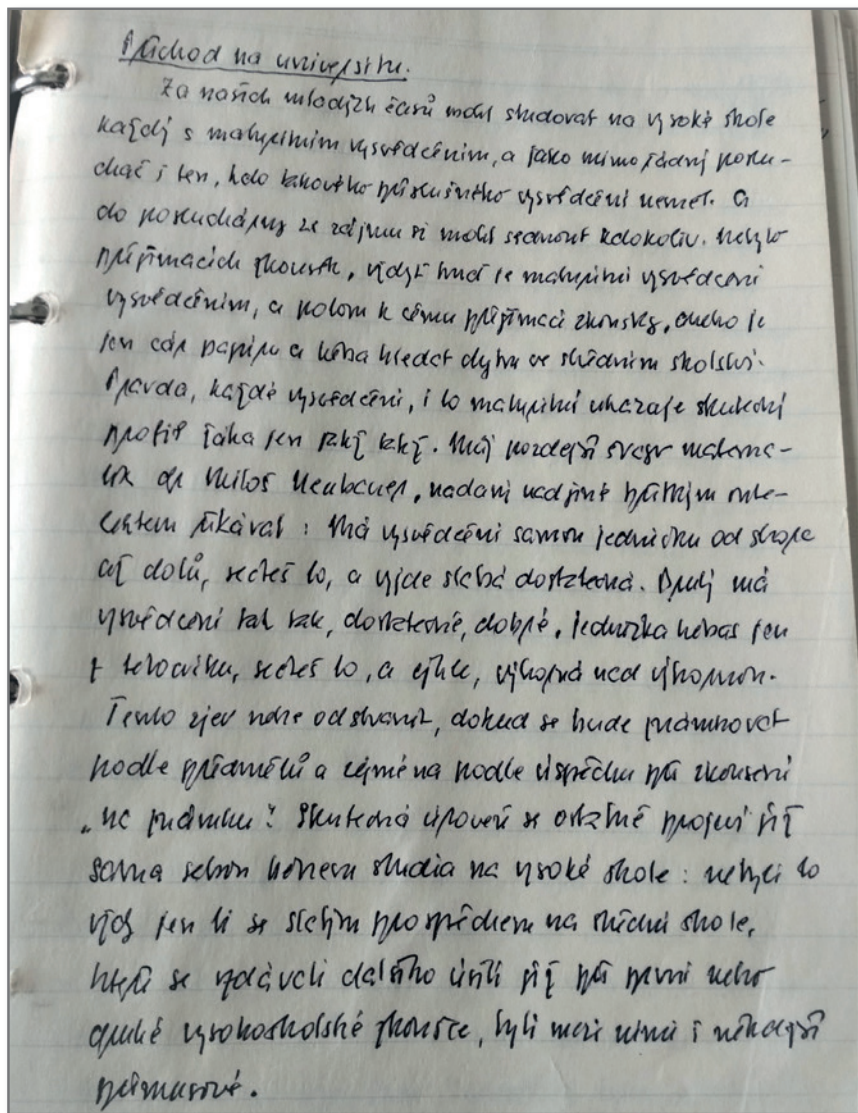 Příchod na universitu.
Za našich mladých časů mohl studovat na vysoké škole
každý s maturitním vysvědčením, a jako mimořádný poslu-
chač i ten, kdo takového příslušného vysvědčení neměl. A
do posluchárny ze zájmu si mohl sednout kdokoliv. Nebylo
přijímacích zkoušek, vždyť buď je maturitní vysvědčení
vysvědčením, a potom k čemu přijímací zkoušky, anebo je
jen cár papíru a třeba hledat chybu ve středním školství.
Pravda, každé vysvědčení, i to maturitní ukazuje skutečný
profil žáka jen taky taky. Můj pozdější švagr matema-
tik dr Miloš Neubauer, nadaný nadmíru břitkým inte-
lektem říkával: Má vysvědčení samou jedničku od shora
až dolů, sečteš to, a vyjde slabá dostatečná. Druhý má
vysvědčení tak tak, dostatečné, dobré, jednička třebas jen
z tělocviku, sečteš to, a ejhle, výborná nad výbornou.
Tento zjev nelze odstranit, dokud se bude známkovat
podle předmětů a zejména podle úspěchu při zkoušení
„na známku". Skutečná úroveň se ostatně projeví již
sama sebou během studia na vysoké škole: nebyli to
vždy jen ti se slabým prospěchem na střední škole,
kteří se vzdávali dalšího úsilí již při první nebo
druhé vysokoškolské zkoušce, byli mezi nimi i někdejší
primusové.